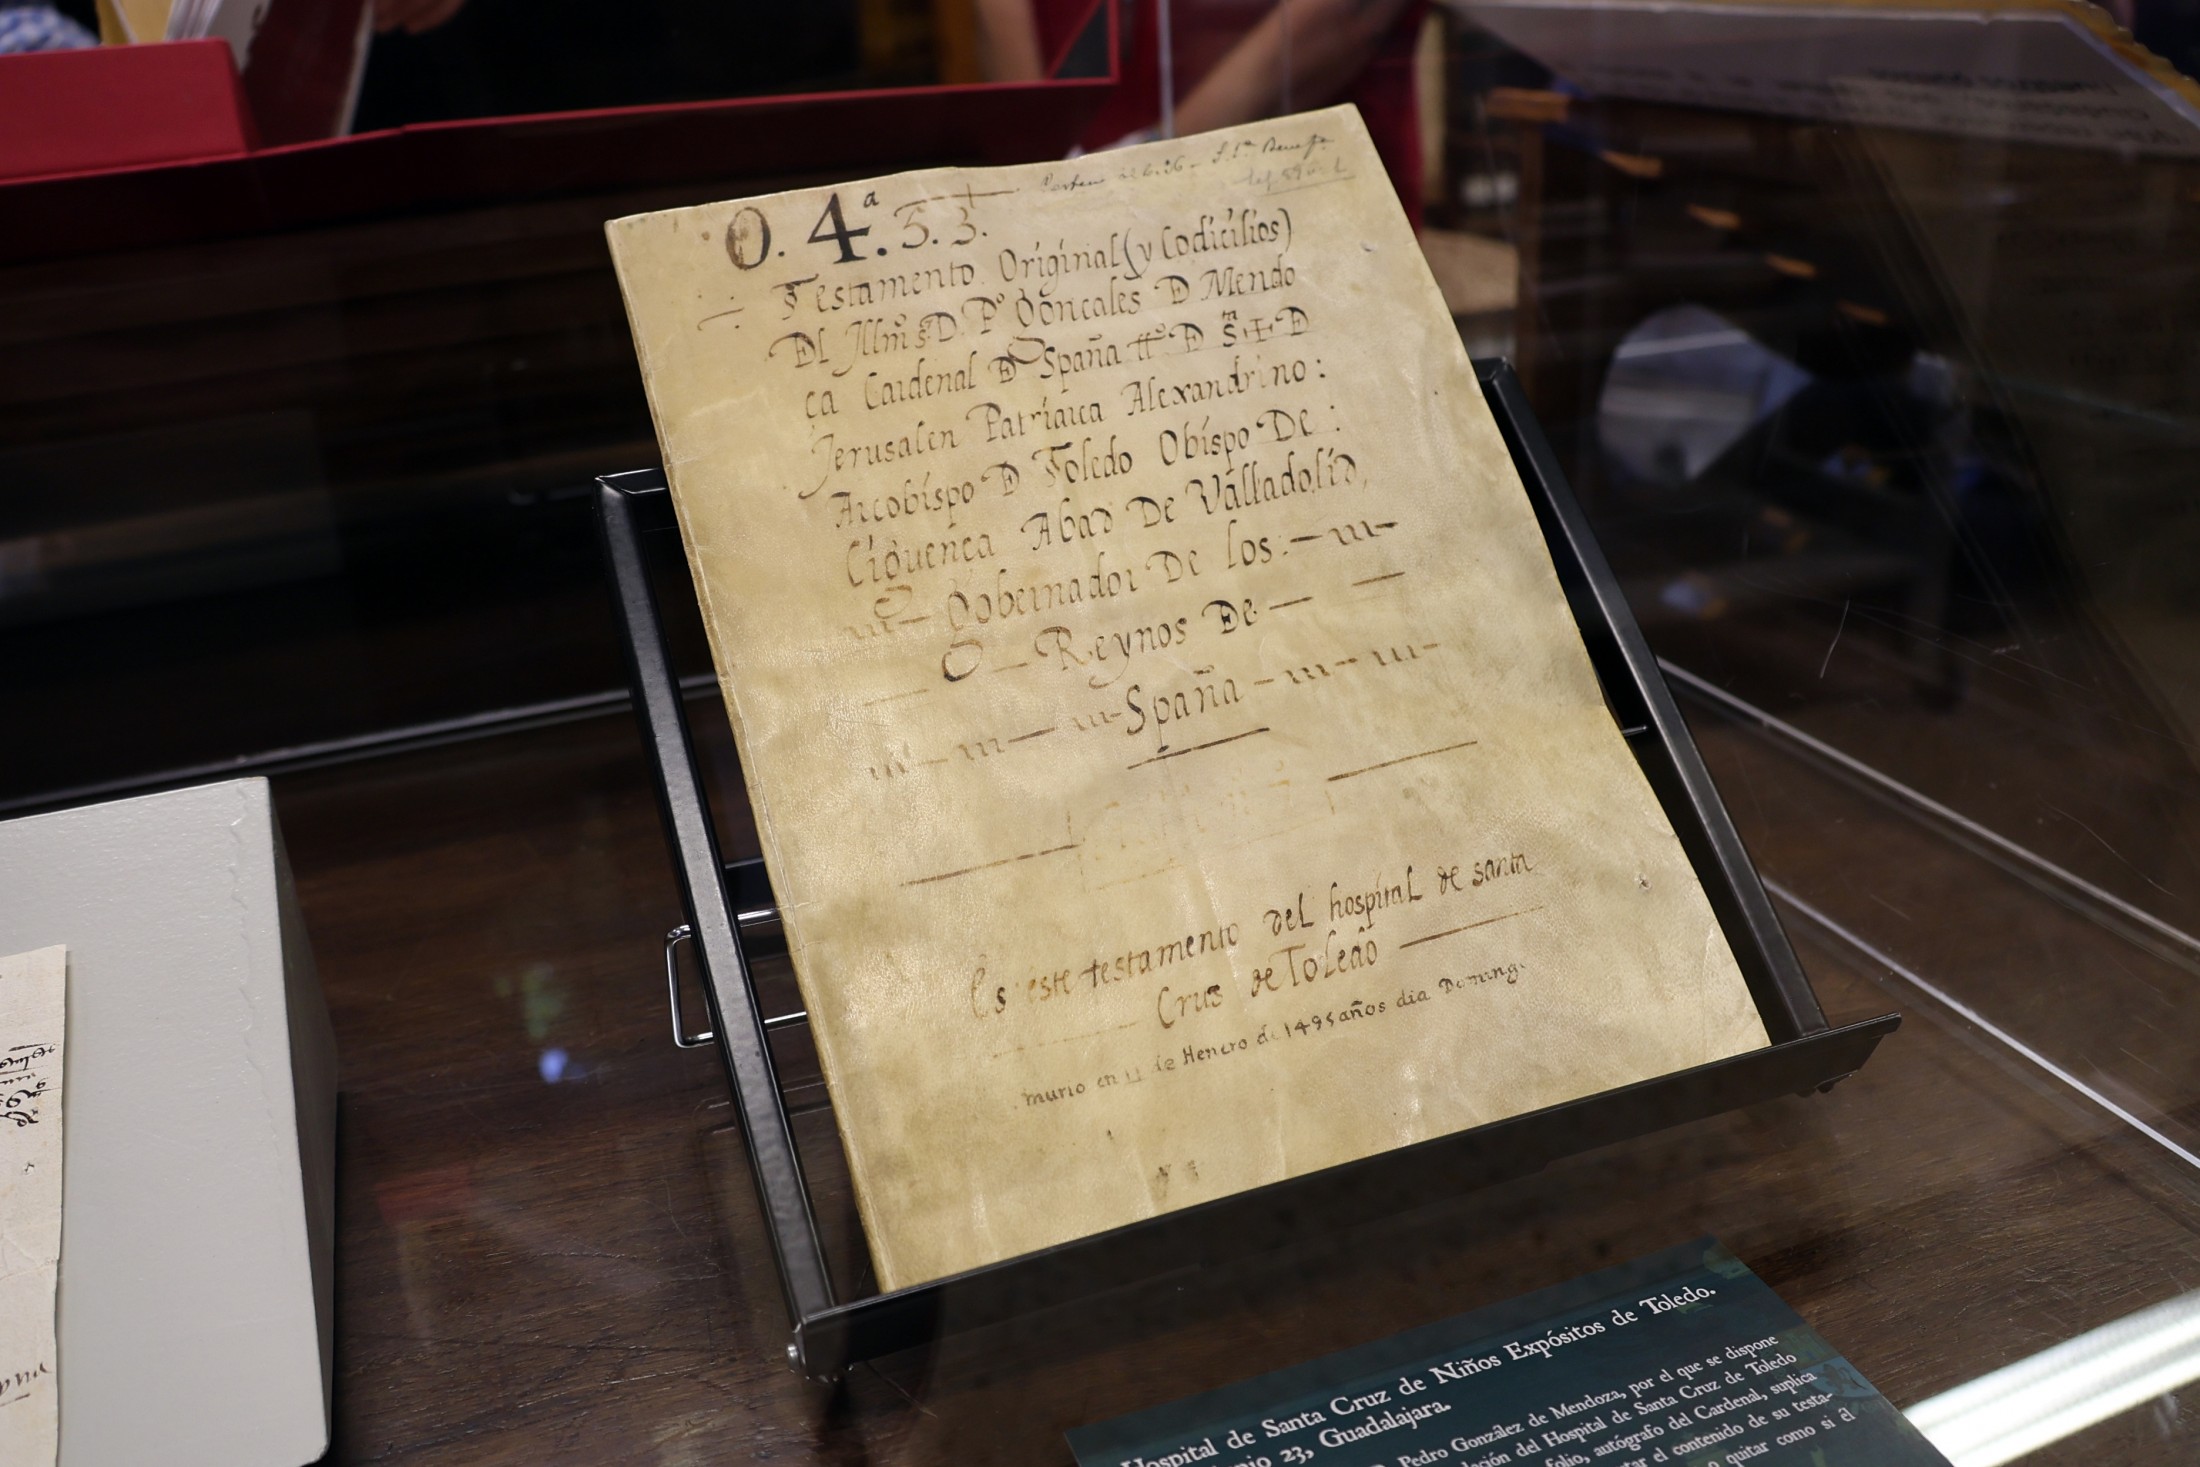 O. 4.ª 5. 3.
Testamento Original (y Codicilios)
El Illmo s. D. Pº Gonçales D Mendo
ça Cardenal D Spaña ttº D Sm + D
Jerusalen Patriarca Alexandrino:
Arcobispo D Toledo Obispo De:
Ciguença Abad De Valladolid,
Gobernador De los:
Reynos De
Spaña
Es este testamento del hospital de santa
Crus de Toledo
murio en 11 de Henero de 1495 años dia Domingo
Hospital de Santa Cruz de Niños Expósitos de Toledo.
23, Guadalajara.
Pedro González de Mendoza, por el que se dispone
del Hospital de Santa Cruz de Toledo
folio, autógrafo del Cardenal, suplica
el contenido de su testa-
quitar como si él